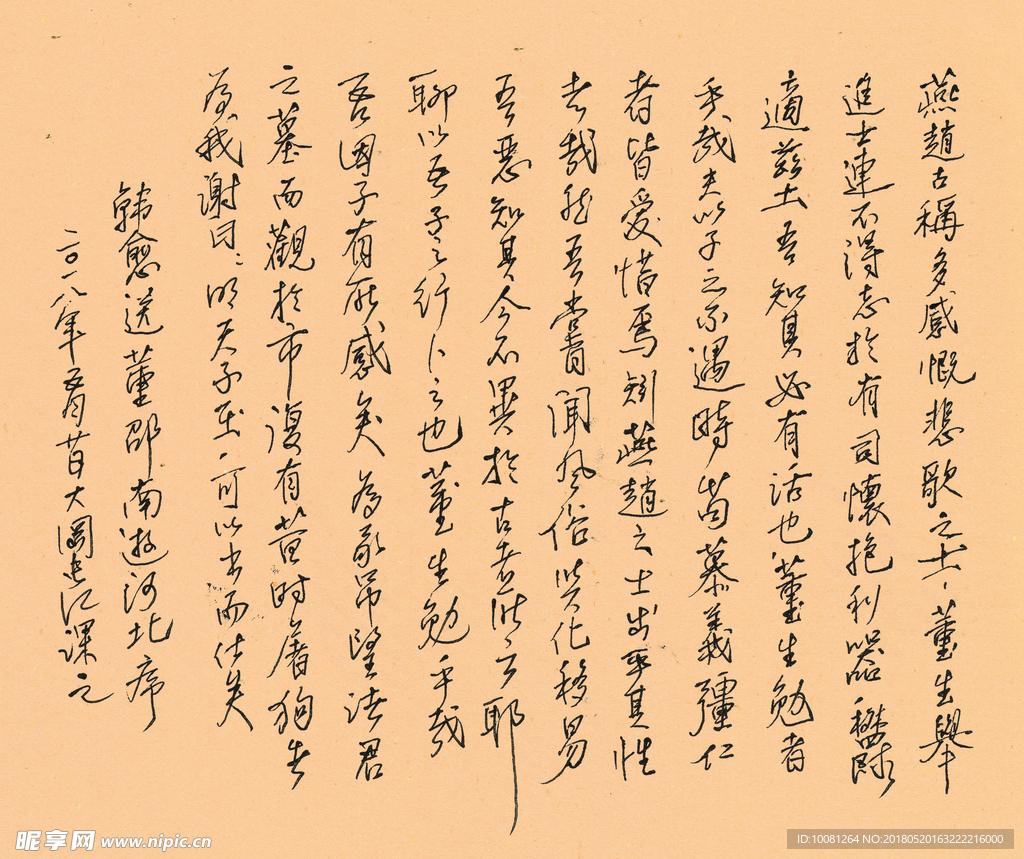 燕趙古稱多感慨悲歌之士、董生舉
進士連不得志於有司懷抱利器鬱
適茲土吾知其必有活也董生勉者
乎哉夫以子之不遇時苟慕義彊仁
者皆愛惜焉矧燕趙之士出乎其性
者哉然吾嘗聞風俗與化移易
吾惡知其今不異於古者所云耶
聊以吾子之行卜之也董生勉乎哉
吾因子有所感矣為我吊望諸君
之墓而觀於市復有昔時屠狗者
為我謝曰:明天子在上可以出而仕矣
韓愈送董邵南遊河北序
二〇一八年五月廿日大岡江課之
昵享网 www.nipic.cn
ID:10081264 NO:20180520163222216000